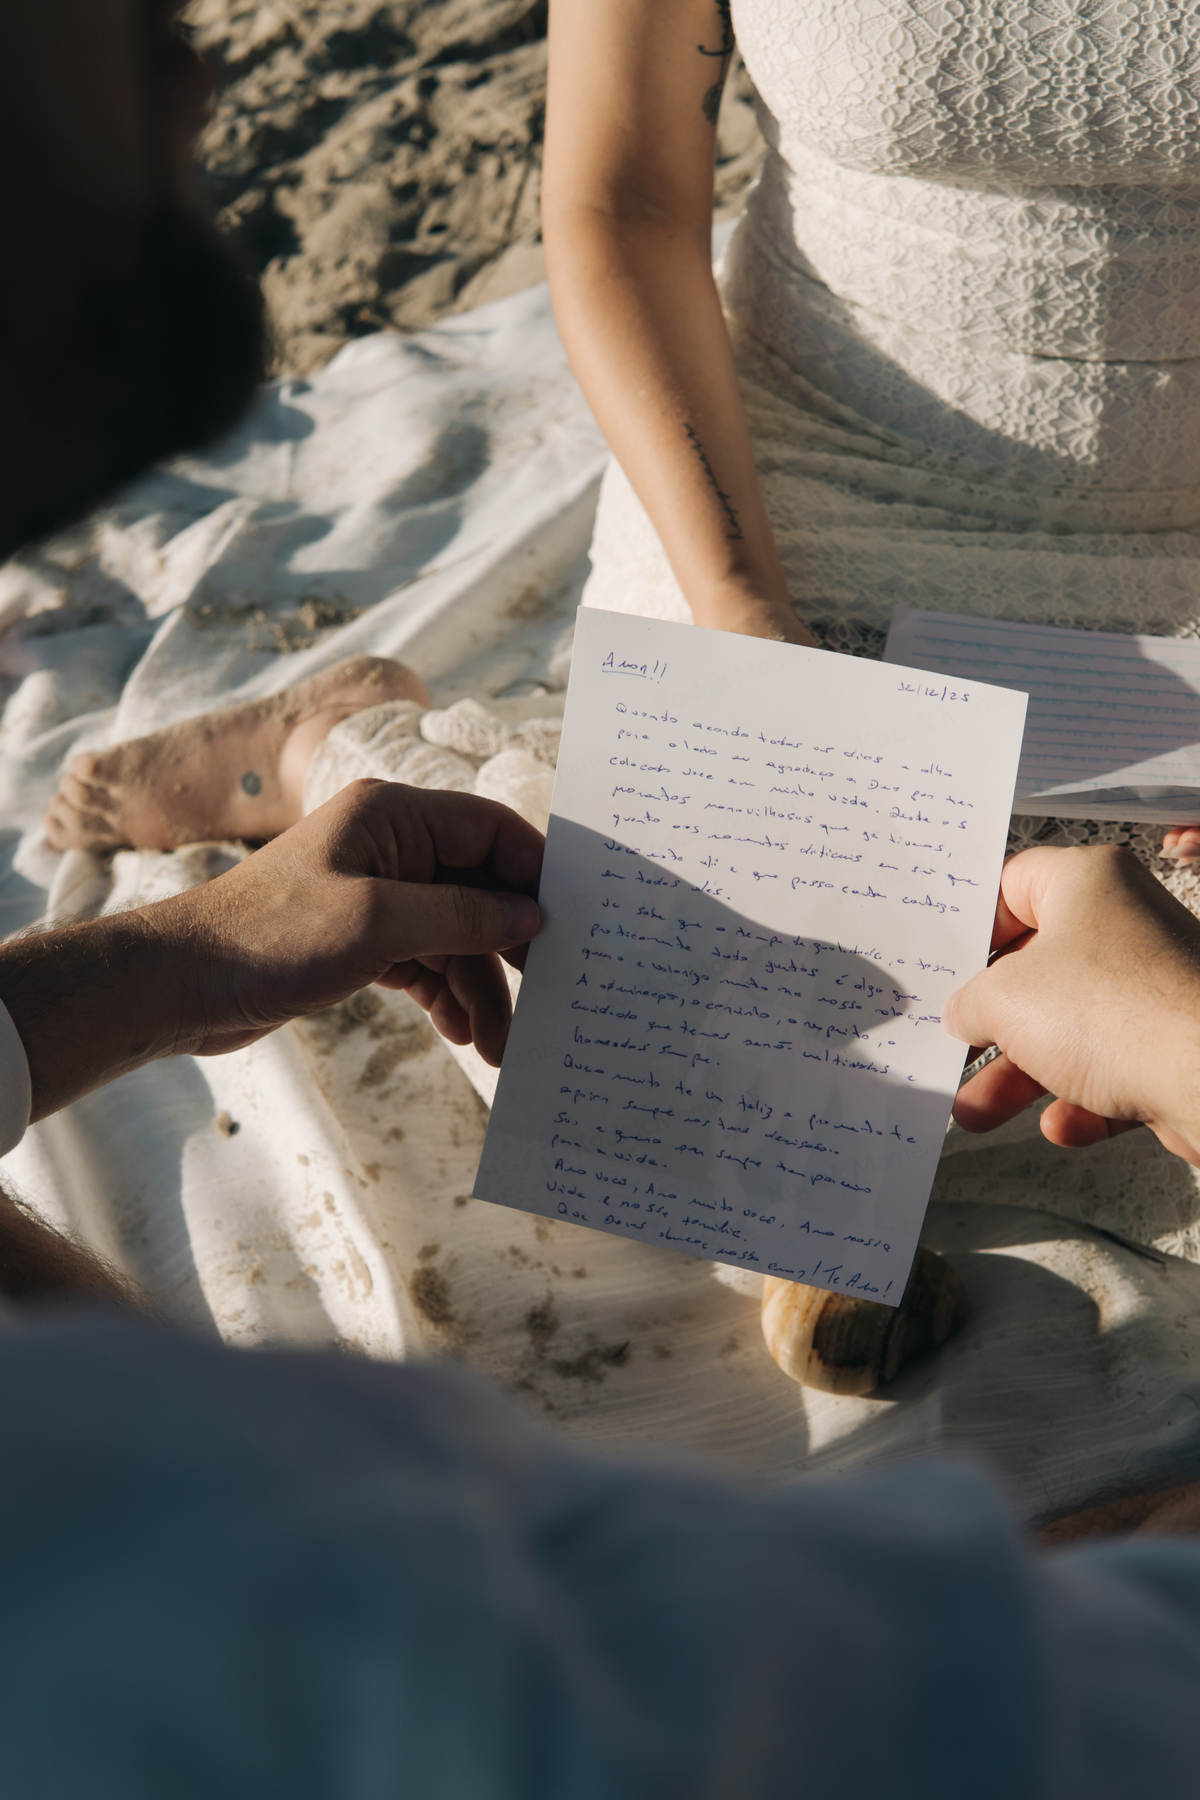 Amor!!
12/12/25
Quando acordo todos os dias e olho
para o lado eu agradeço a Deus por ter
colocado voce em minha vida. Desde os
momentos maravilhosos que já tivemos,
quanto aos momentos dificeis em sei que
você está ali e que posso contar contigo
em todos eles.
Vc sabe que o tempo de qualidade, o
praticamente tudo juntos é algo que
quero e valorizo muito na nossa relação
A admiração, o carinho, o respeito, o
cuidado que temos serão cultivados e
honrados sempre.
Quero muito te ver feliz e prometo te
apoiar sempre nas tuas decisões.
Sou e quero ser sempre teu parceiro
para a vida.
Amo você, Amo muito você, Amo nossa
vida e nossa família.
Que Deus abençoe nosso amor! Te Amo!